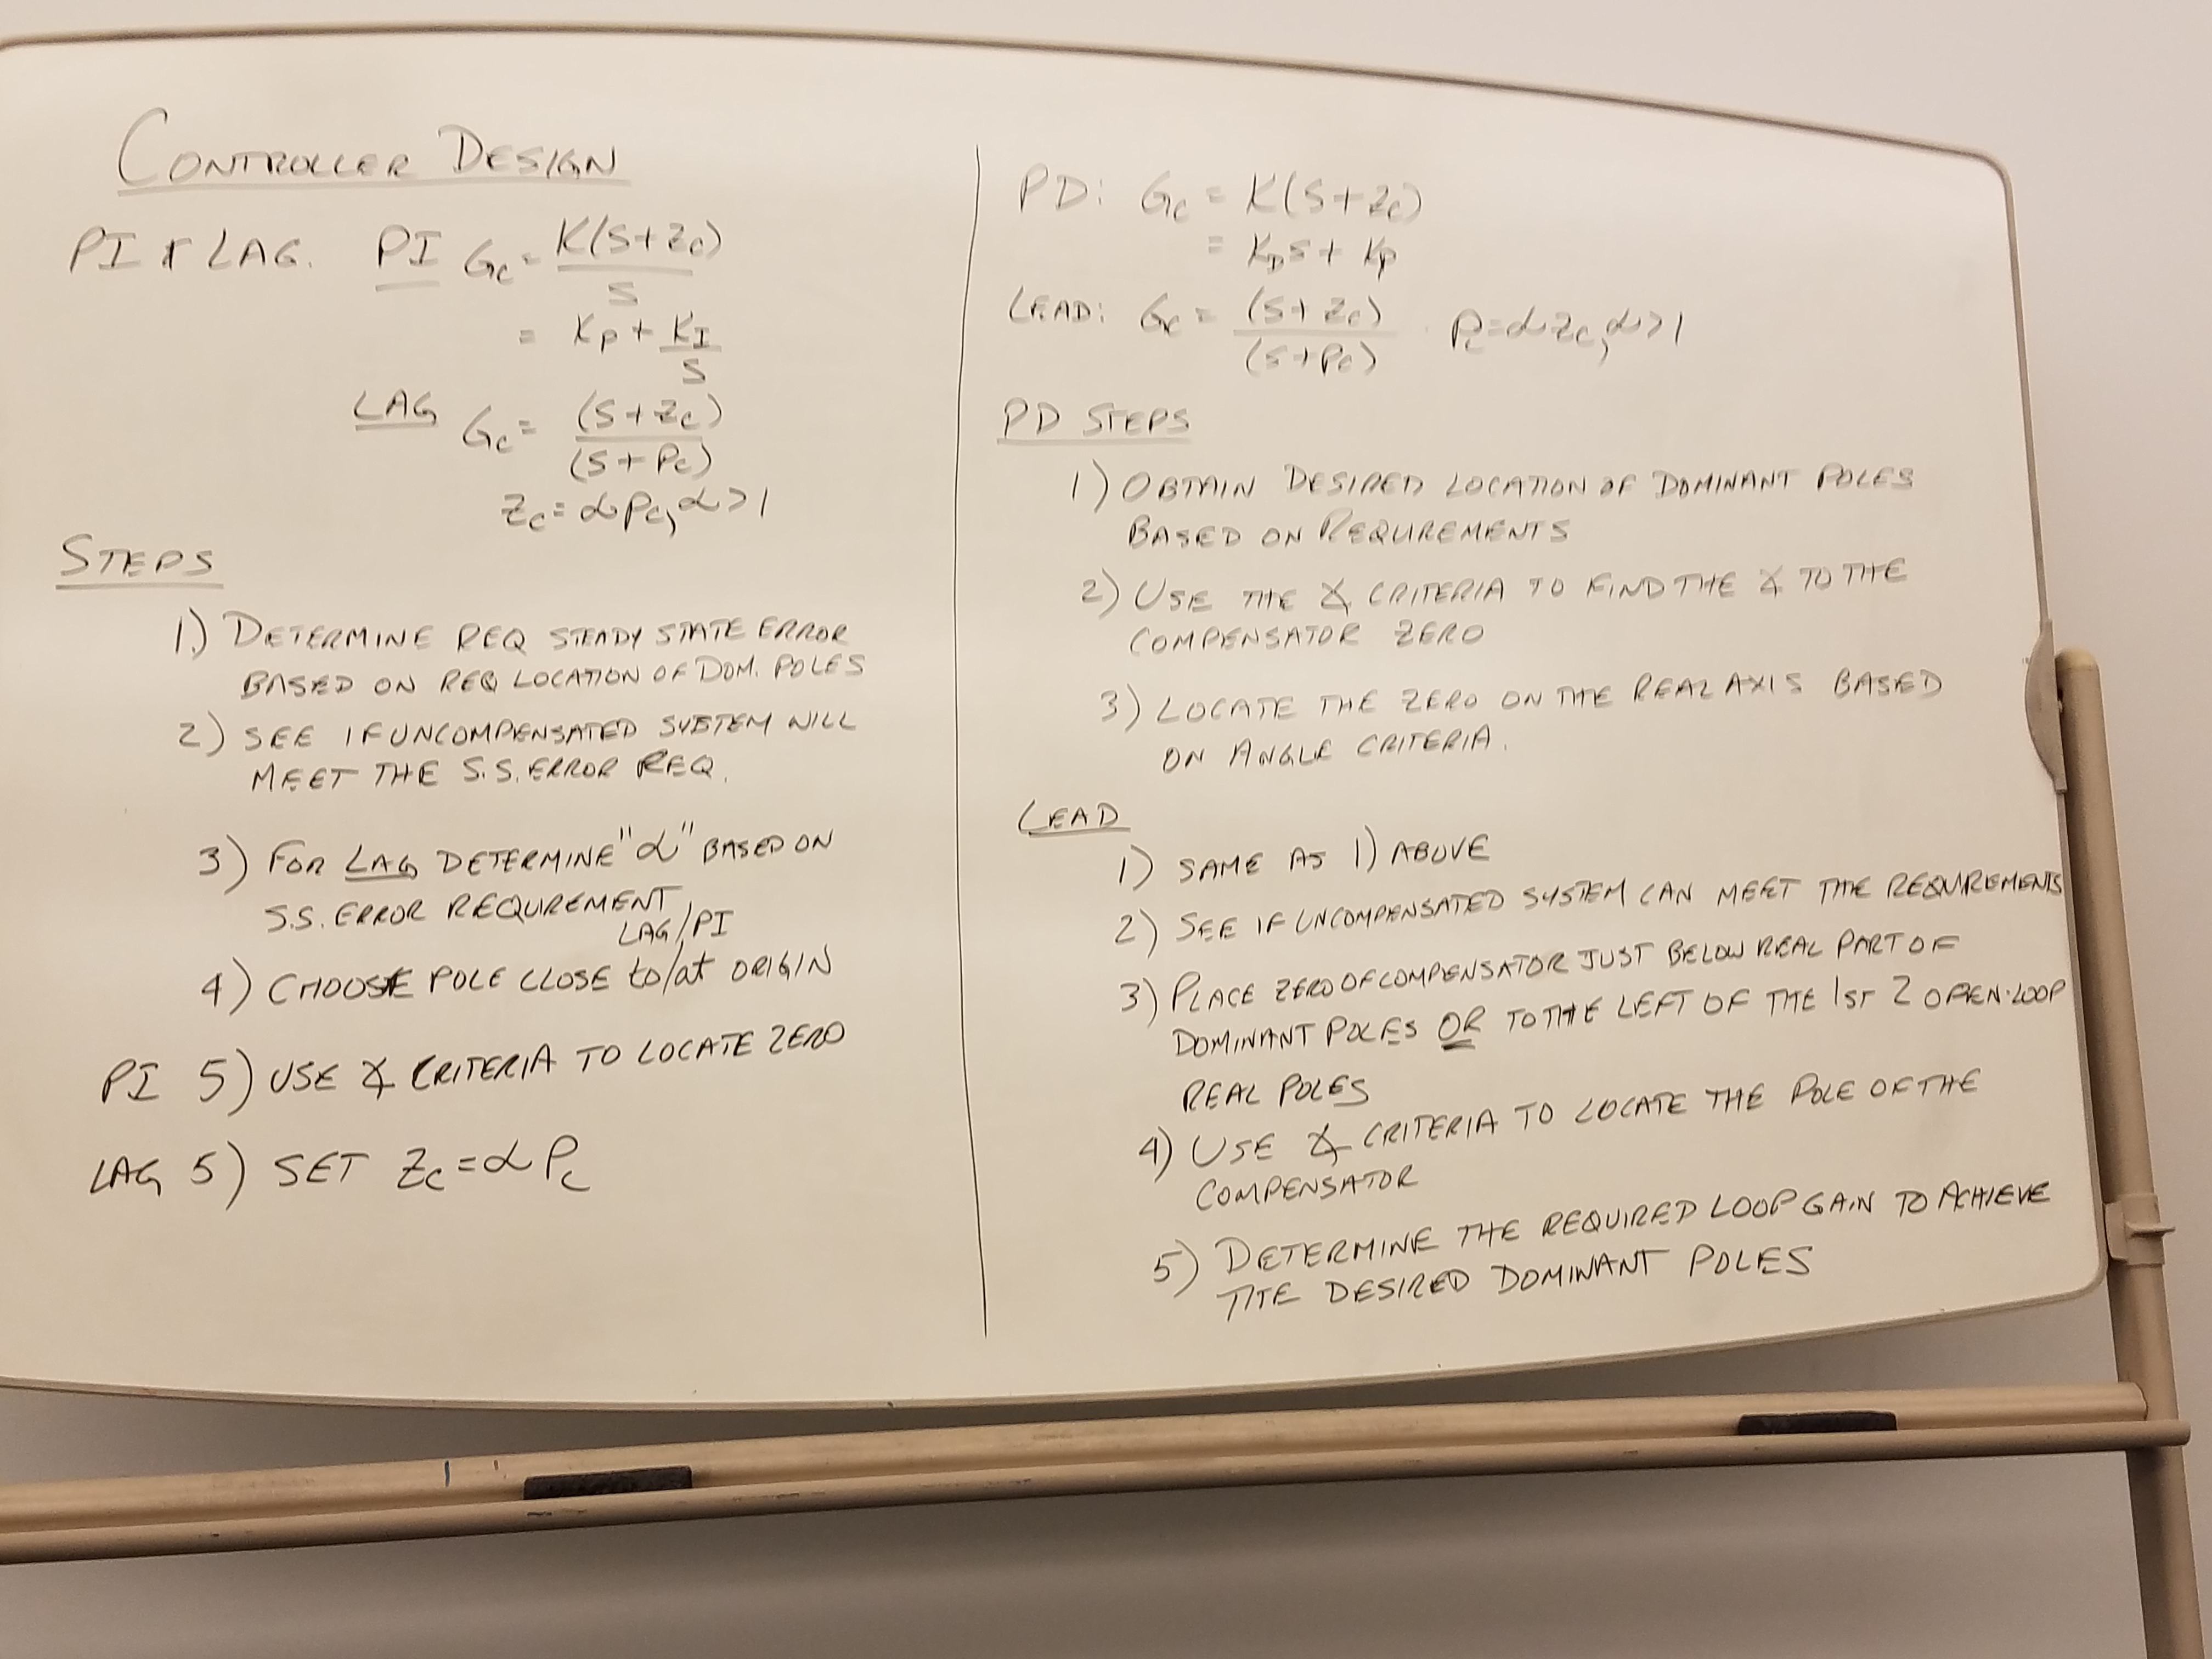 CONTROLLER DESIGN
PI & LAG. PI Gc = K(S+Zc)
S
= KP + KI
S
LAG Gc = (S+Zc)
(S+Pc)
Zc = αPc, α>1
STEPS
1.) DETERMINE REQ STEADY STATE ERROR
BASED ON REQ LOCATION OF DOM. POLES
2) SEE IF UNCOMPENSATED SYSTEM WILL
MEET THE S.S. ERROR REQ.
3) FOR LAG DETERMINE "α" BASED ON
S.S. ERROR REQUREMENT
LAG/PI
4) CHOOSE POLE CLOSE to/at ORIGIN
PI 5) USE ∡ CRITERIA TO LOCATE ZERO
LAG 5) SET Zc = αPc
PD: Gc = K(S+Zc)
= KDS + KP
LEAD: Gc = (S+Zc) Pc=αZc, α>1
(S+Pc)
PD STEPS
1) OBTAIN DESIRED LOCATION OF DOMINANT POLES
BASED ON REQUREMENTS
2) USE THE ∡ CRITERIA TO FIND THE ∡ TO THE
COMPENSATOR ZERO
3) LOCATE THE ZERO ON THE REAL AXIS BASED
ON ANGLE CRITERIA.
LEAD
1) SAME AS 1) ABOVE
2) SEE IF UNCOMPENSATED SYSTEM CAN MEET THE REQUREMENTS
3) PLACE ZERO OF COMPENSATOR JUST BELOW REAL PART OF
DOMINANT POLES OR TO THE LEFT OF THE 1ST 2 OPEN-LOOP
REAL POLES
4) USE ∡ CRITERIA TO LOCATE THE POLE OF THE
COMPENSATOR
5) DETERMINE THE REQUIRED LOOP GAIN TO ACHIEVE
THE DESIRED DOMINANT POLES